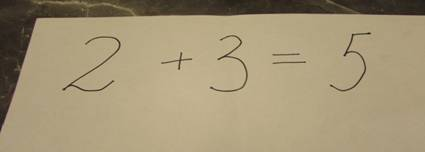 2 + 3 = 5